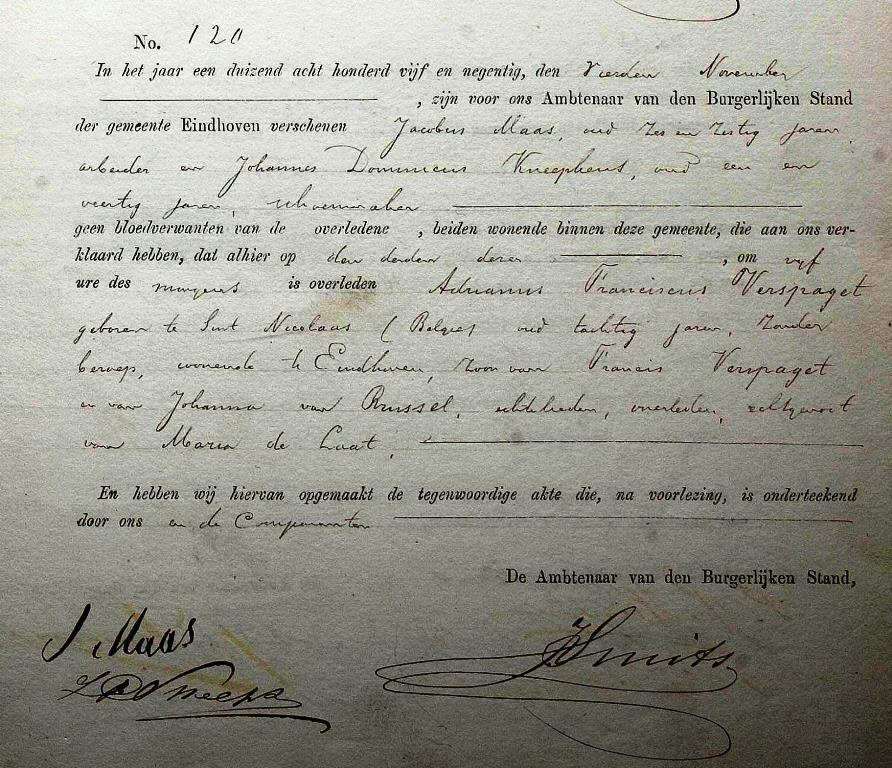 No. 120
In het jaar een duizend acht honderd vijf en negentig, den vierden November
, zijn voor ons Ambtenaar van den Burgerlijken Stand
der gemeente Eindhoven verschenen Jacobus Maas, oud zes en zestig jaren,
arbeider en Johannes Dominicus Kneephens, oud een en
veertig jaren, schoenmaker
geen bloedverwanten van de overledene , beiden wonende binnen deze gemeente, die aan ons ver-
klaard hebben, dat alhier op den derden dezer , om vijf
ure des morgens is overleden Adrianus Franciscus Verspaget
geboren te Sint Nicolaas (Belgie) oud tachtig jaren, zonder
beroep, wonende te Eindhoven, zoon van Francis Verspaget
en van Johanna van Brussel, echtelieden, overleden, echtgenoot
van Maria de Laat,
En hebben wij hiervan opgemaakt de tegenwoordige akte die, na voorlezing, is onderteekend
door ons en de Comparanten
De Ambtenaar van den Burgerlijken Stand,
J Maas
JSmits